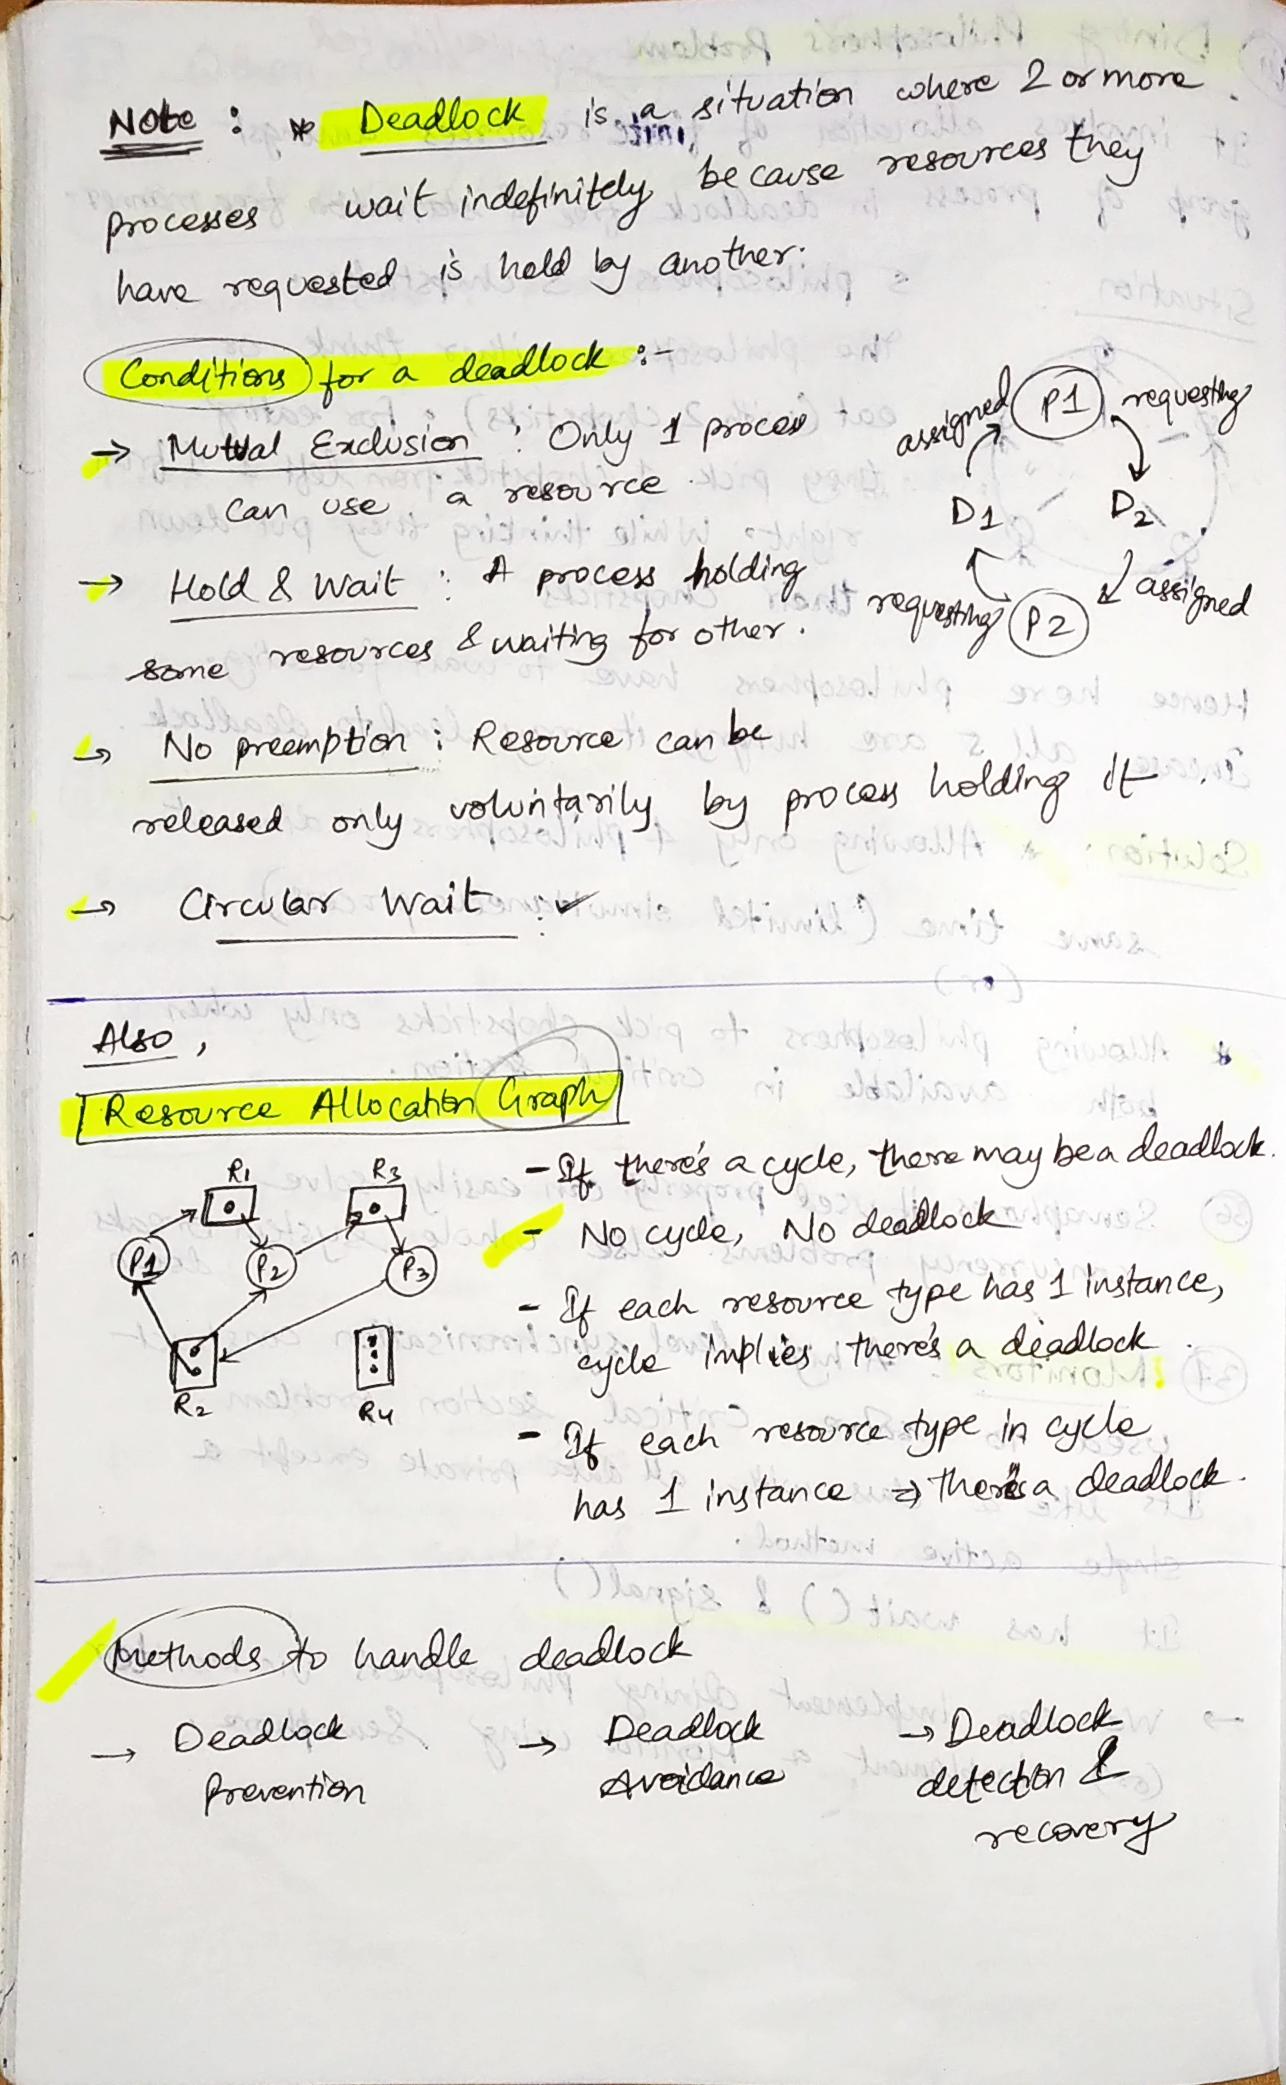 Note : * Deadlock is a situation where 2 or more
processes wait indefinitely because resources they
have requested is held by another.
Conditions for a deadlock :-
→ Mutual Exclusion : Only 1 process
can use a resource.
→ Hold & Wait : A process holding
some resources & waiting for other.
assigned P1 requesting
D1 D2
requesting P2 assigned
→ No preemption : Resource can be
released only voluntarily by process holding it.
→ Circular Wait : ✓
Also,
Resource Allocation Graph
R1 R3
P1 P2 P3
R2 R4
- If there's a cycle, there may be a deadlock.
- No cycle, No deadlock
- If each resource type has 1 instance,
cycle implies there's a deadlock.
- If each resource type in cycle
has 1 instance ⇒ there's a deadlock.
Methods to handle deadlock
→ Deadlock
Prevention
→ Deadlock
Avoidance
→ Deadlock
detection &
recovery